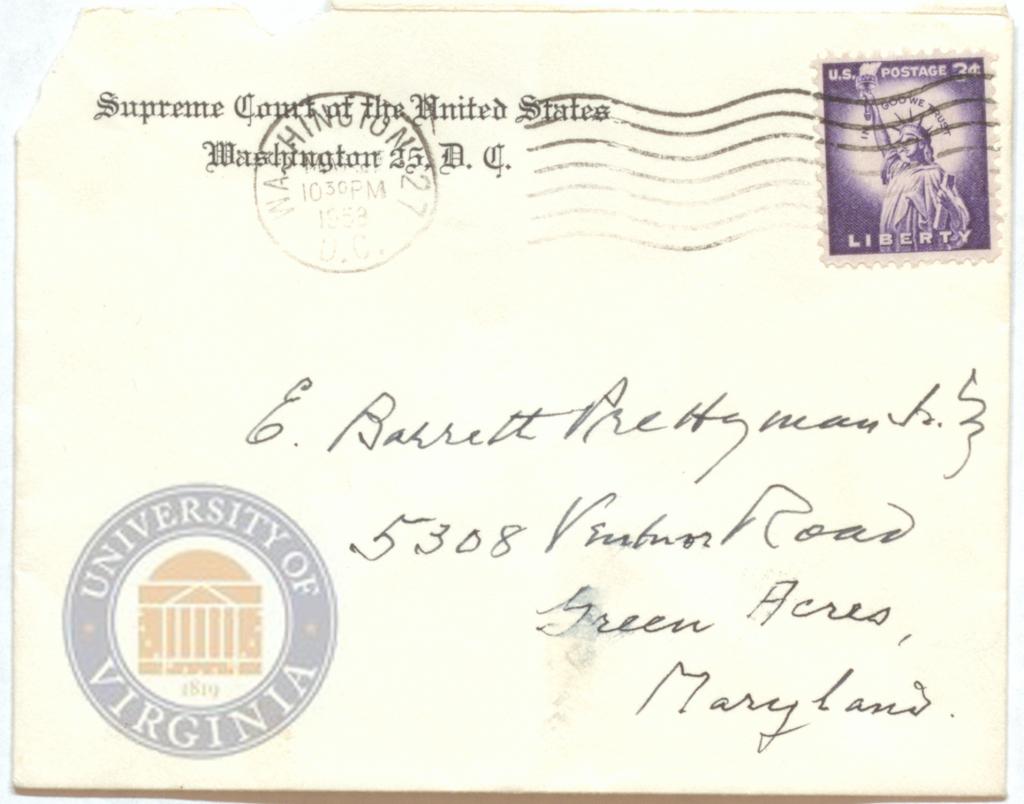 Supreme Court of the United States
Washington 25, D. C.
WASHINGTON 27
1030 PM
1958
D.C.
U.S. POSTAGE 3¢
IN GOD WE TRUST
LIBERTY
E. Barrett Prettyman Jr.
5308 Ventnor Road
Green Acres,
Maryland.
UNIVERSITY OF
VIRGINIA
1819